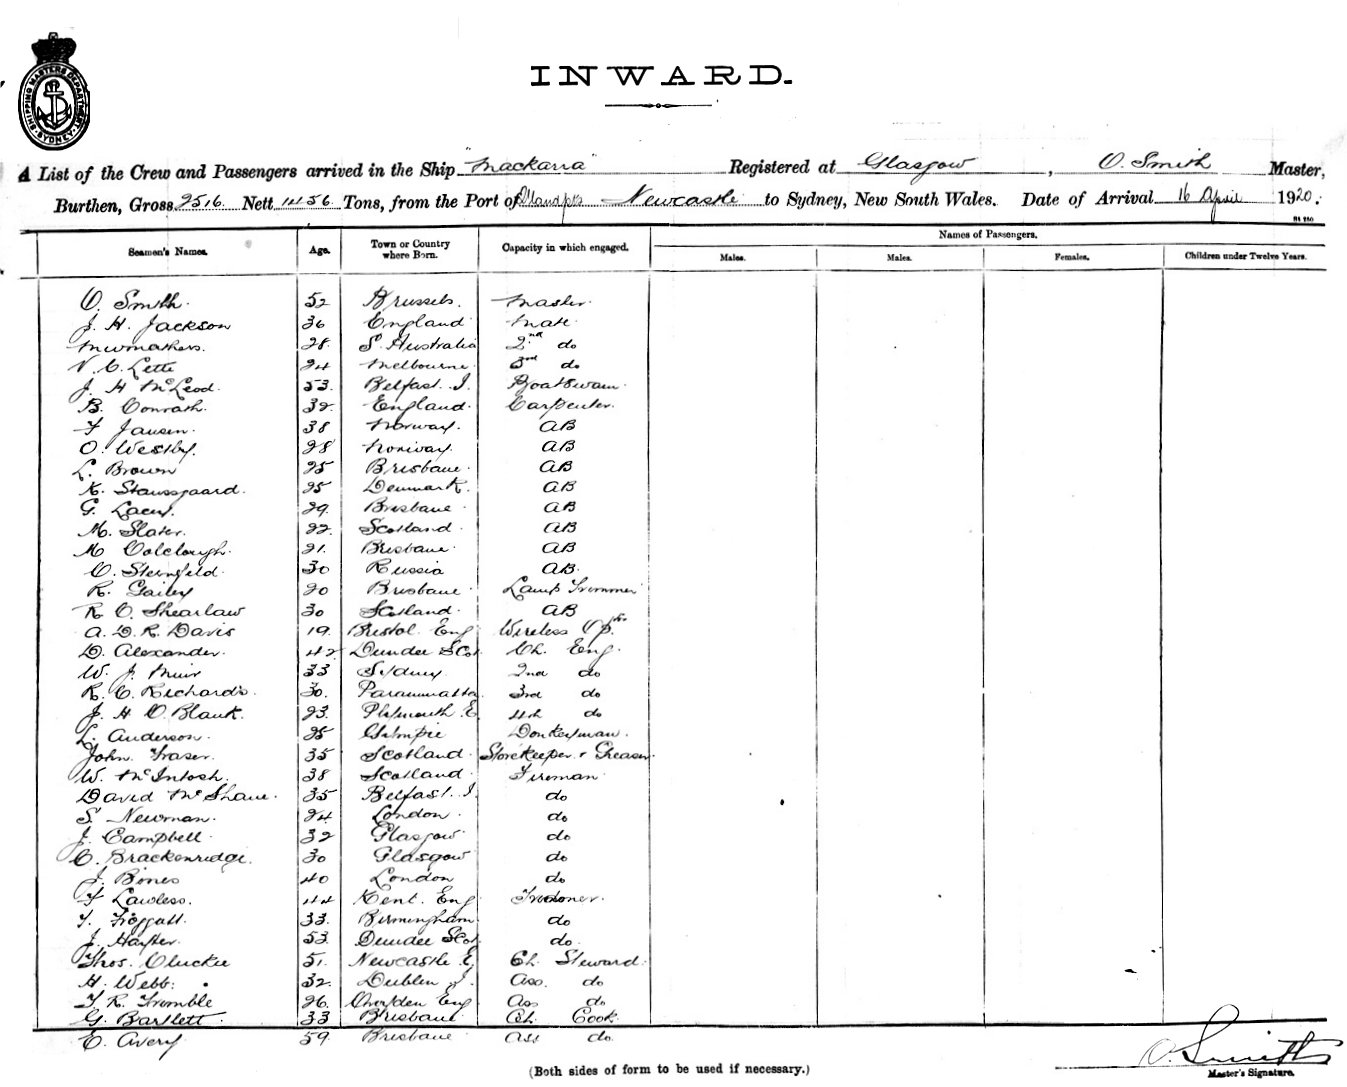 SHIPPING MASTERS DEPARTMENT SYDNEY
INWARD.
A List of the Crew and Passengers arrived in the Ship "Mackarra" Registered at Glasgow, O. Smith Master,
Burthen, Gross 2516 Nett 1456 Tons, from the Port of Newcastle to Sydney, New South Wales. Date of Arrival 16 April 1920.
Names of Passengers.
Seamen's Names. Age. Town or Country where Born. Capacity in which engaged. Males. Males. Females. Children under Twelve Years.
O. Smith. 52 Brussels. Master.
J. H. Jackson 36 England Mate
28. S. Australia 2nd do
V. C. Lette 24 Melbourne 3rd do
J. H McLeod. 53. Belfast. I. Boatswain.
B. Conrath. 32. England. Carpenter.
F Jansen. 38 Norway. AB
O. Westby. 28 Norway. AB
L. Brown 25 Brisbane. AB
K. Staussgaard. 25 Denmark. AB
G. Lacey. 29. Brisbane AB
M. Slater. 22. Scotland. AB
M Colclough. 21. Brisbane. AB
C. Steinfeld. 30 Russia AB.
R. Gailey 20 Brisbane. Lamp Trimmer
R. C. Shearlaw 30 Scotland. AB
A. D. R. Davis 19. Bristol. Eng Wireless Optr.
D. Alexander. 42 Dundee Scot Ch. Eng.
W. J. Muir 33 Sydney 2nd do
R. C. Richards. 30. Parramatta. 3rd do
J. H O. Blank. 23. Plymouth E. 4th do
L. Anderson. 25 Gympie Donkeyman.
John Fraser. 35 Scotland. Storekeeper & Greaser.
W. McIntosh. 38 Scotland. Fireman.
David McShane. 35 Belfast. I. do
S. Newman. 24. London. do
J. Campbell. 32 Glasgow. do
C. Brackenridge. 30 Glasgow. do
J. Bones 40 London do
F Lawless. 44 Kent. Eng Trimmer.
T. Froggatt. 33. Birmingham. do
J. Harper. 53. Dundee Scot do.
Thos. Cluckie 51. Newcastle E. Ch. Steward.
H. Webb. 32. Dublin I. Ass. do
T. R. Trumble 26. Croyden Eng Ass do
G. Bartlett. 33 Brisbane Ch. Cook.
E. Avery 59. Brisbane Ass do.
O. Smith
Master's Signature.
(Both sides of form to be used if necessary.)